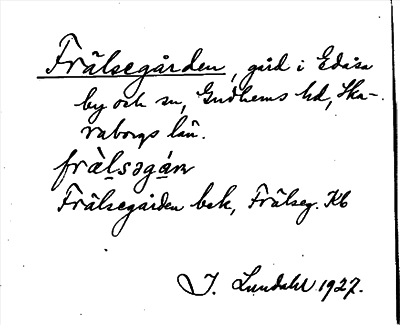 Frälsegården, gård i Edåsa
by och sn, Gudhems hd, Ska-
raborgs län.
frälsəgáɳ
Frälsegården bek, Frälseg. Kb
I. Lundahl 1927.